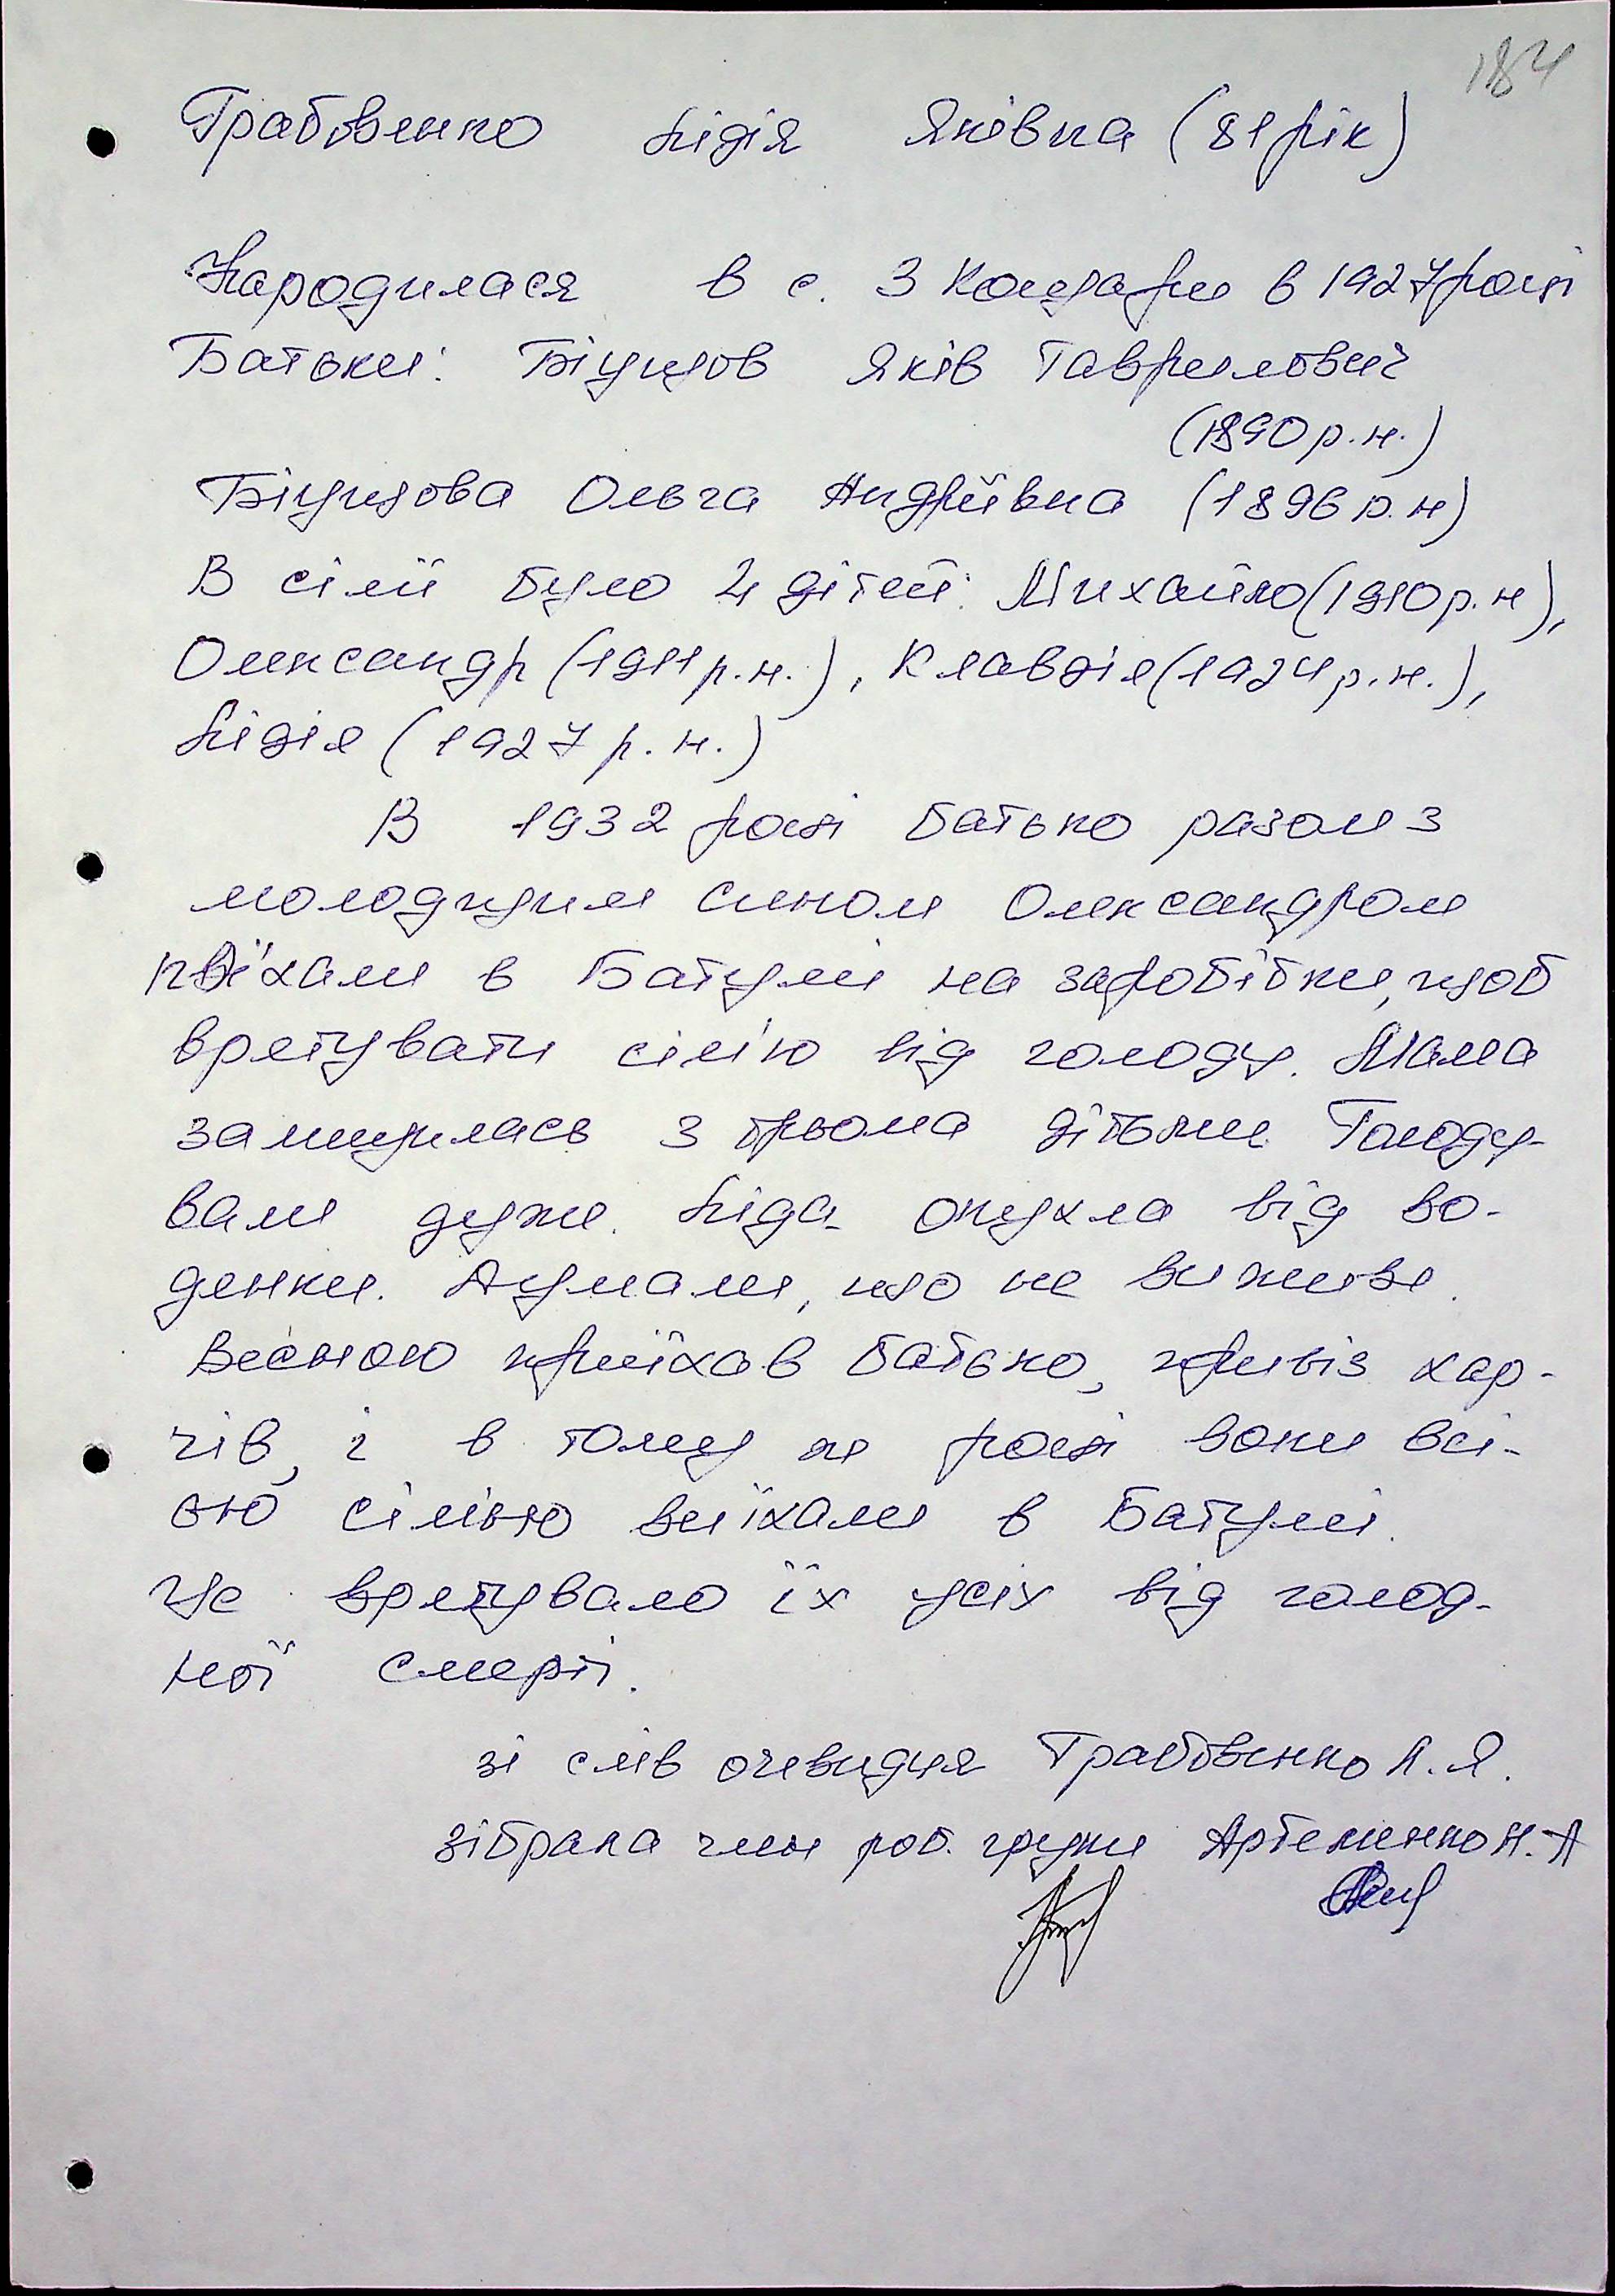 184
Грабовенко Лідія Яківна (81 рік)
Народилася в с. З Кошари в 1927 році
Батьки: Біцуков Яків Гаврилович
(1890 р.н.)
Ольга Андріївна (1896 р.н)
В сімї було 4 дітей: Михайло (1910 р.н),
Олександр (1911 р.н.), Клавдія (1924 р.н.),
Лідія (1927 р.н.)
В 1932 році батько разом з
молодшим сином Олександром
поїхали в Батумі на заробітки, щоб
врятувати сім'ю від голоду. Мама
залишилась з трьома дітьми. Голоду-
вали дуже. Ліда опухла від во-
дянки. Думали, що не виживе.
Весною приїхав батько, привіз хар-
чів, і в тому ж році вони всі-
єю сімією виїхали в Батумі.
Це врятувало їх усіх від голод-
ної смерті.
зі слів очевидця Грабовенко Л.Я.
зібрала член роб. групи Артеменко Н.А